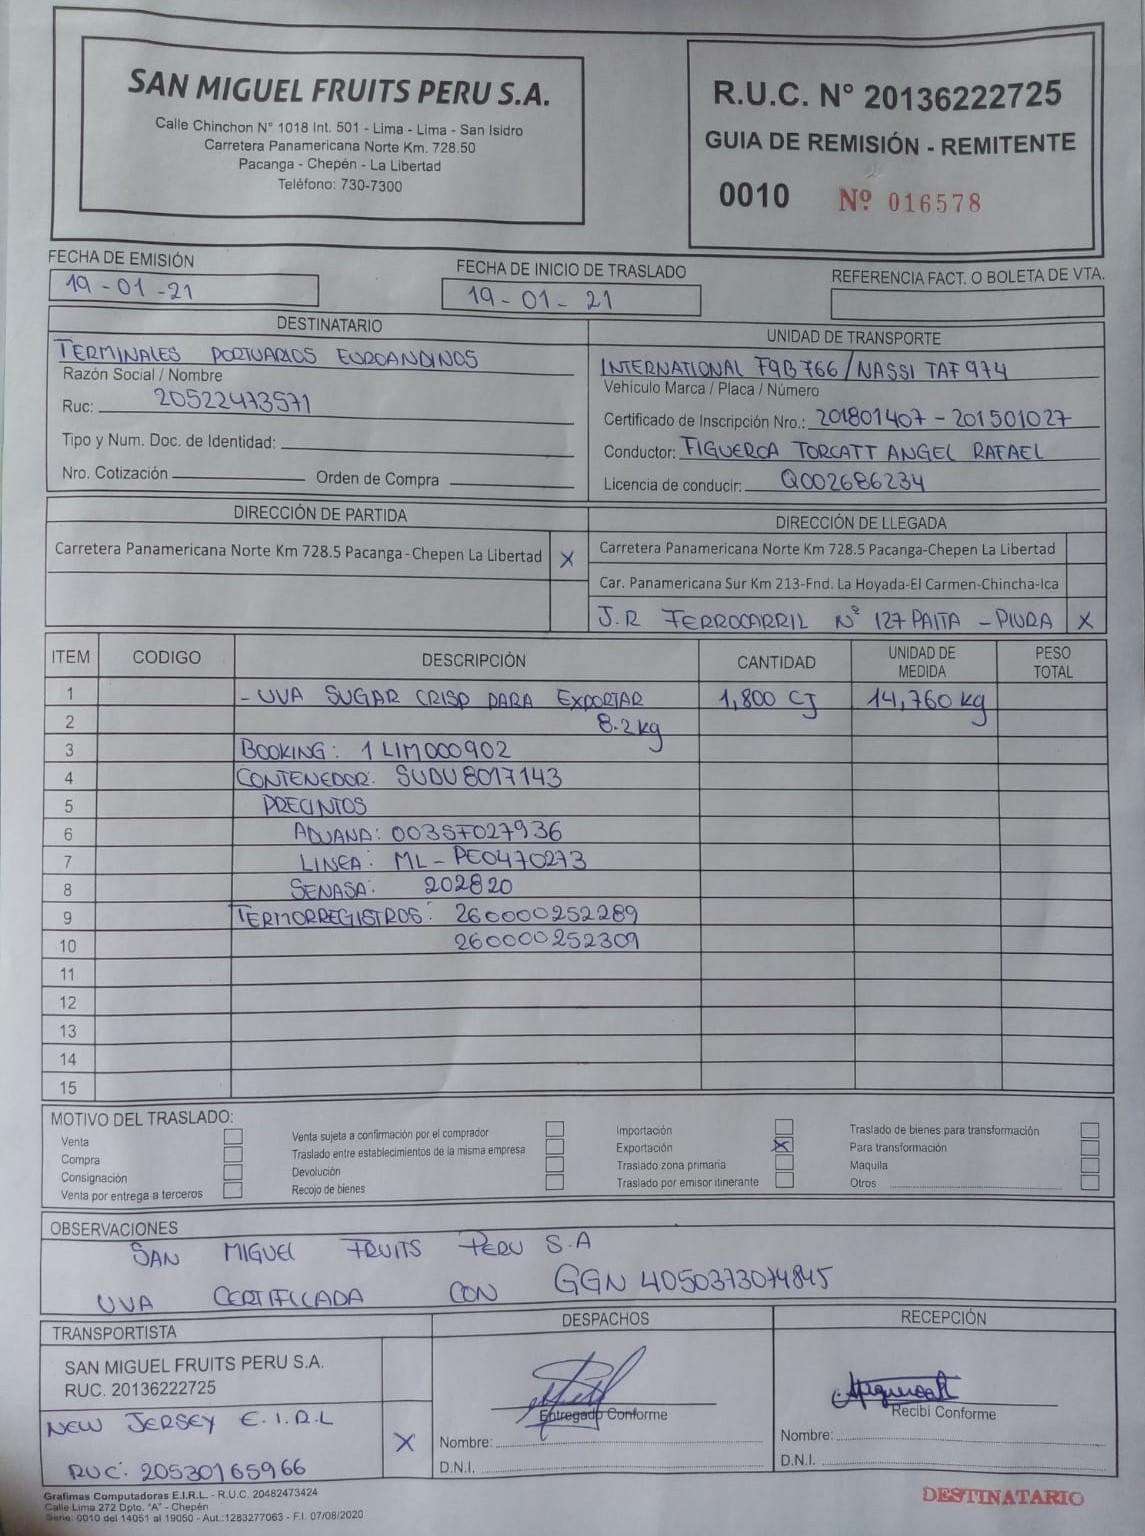 SAN MIGUEL FRUITS PERU S.A.
Calle Chinchon N° 1018 Int. 501 - Lima - Lima - San Isidro
Carretera Panamericana Norte Km. 728.50
Pacanga - Chepén - La Libertad
Teléfono: 730-7300
R.U.C. N° 20136222725
GUIA DE REMISIÓN - REMITENTE
0010 Nº 016578
FECHA DE EMISIÓN
19-01-21
FECHA DE INICIO DE TRASLADO
19-01-21
REFERENCIA FACT. O BOLETA DE VTA.
DESTINATARIO
TERMINALES PORTUARIOS EUROANDINOS
Razón Social / Nombre
Ruc: 20522473571
Tipo y Num. Doc. de Identidad:
Nro. Cotización Orden de Compra
UNIDAD DE TRANSPORTE
INTERNATIONAL F9B766/NASSI TAF974
Vehiculo Marca / Placa / Número
Certificado de Inscripción Nro.: 201801407-201501027
Conductor: FIGUEROA TORCATT ANGEL RAFAEL
Licencia de conducir: Q002686234
DIRECCIÓN DE PARTIDA
Carretera Panamericana Norte Km 728.5 Pacanga-Chepen La Libertad X
DIRECCIÓN DE LLEGADA
Carretera Panamericana Norte Km 728.5 Pacanga-Chepen La Libertad
Car. Panamericana Sur Km 213-Fnd. La Hoyada-El Carmen-Chincha-Ica
J.R FERROCARRIL Nº 127 PAITA - PIURA X
ITEM CODIGO DESCRIPCIÓN CANTIDAD UNIDAD DE MEDIDA PESO TOTAL
1 - UVA SUGAR CRISP PARA EXPORTAR 1,800 CJ 14,760 kg
2 8.2kg
3 BOOKING: 1LIM000902
4 CONTENEDOR: SUDU8017143
5 PRECINTOS
6 ADUANA: 0035F027936
7 LINEA: ML-PE0470273
8 SENASA: 202820
9 TERMORREGISTROS: 260000252289
10 260000252309
11
12
13
14
15
MOTIVO DEL TRASLADO:
Venta
Compra
Consignación
Venta por entrega a terceros
Venta sujeta a confirmación por el comprador
Traslado entre establecimientos de la misma empresa
Devolución
Recojo de bienes
Importación
Exportación X
Traslado zona primaria
Traslado por emisor itinerante
Traslado de bienes para transformación
Para transformación
Maquila
Otros
OBSERVACIONES
SAN MIGUEL FRUITS PERU S.A
UVA CERTIFICADA CON GGN 4050373074845
TRANSPORTISTA
SAN MIGUEL FRUITS PERU S.A.
RUC. 20136222725
NEW JERSEY E.I.R.L X
RUC: 20530165966
DESPACHOS
Entregado Conforme
Nombre:
D.N.I.
RECEPCIÓN
Recibi Conforme
Nombre:
D.N.I.
Grafimas Computadoras E.I.R.L. - R.U.C. 20482473424
Calle Lima 272 Dpto. "A" - Chepén
Serie: 0010 del 14051 al 19050 - Aut.:1283277063 - F.I. 07/08/2020
DESTINATARIO